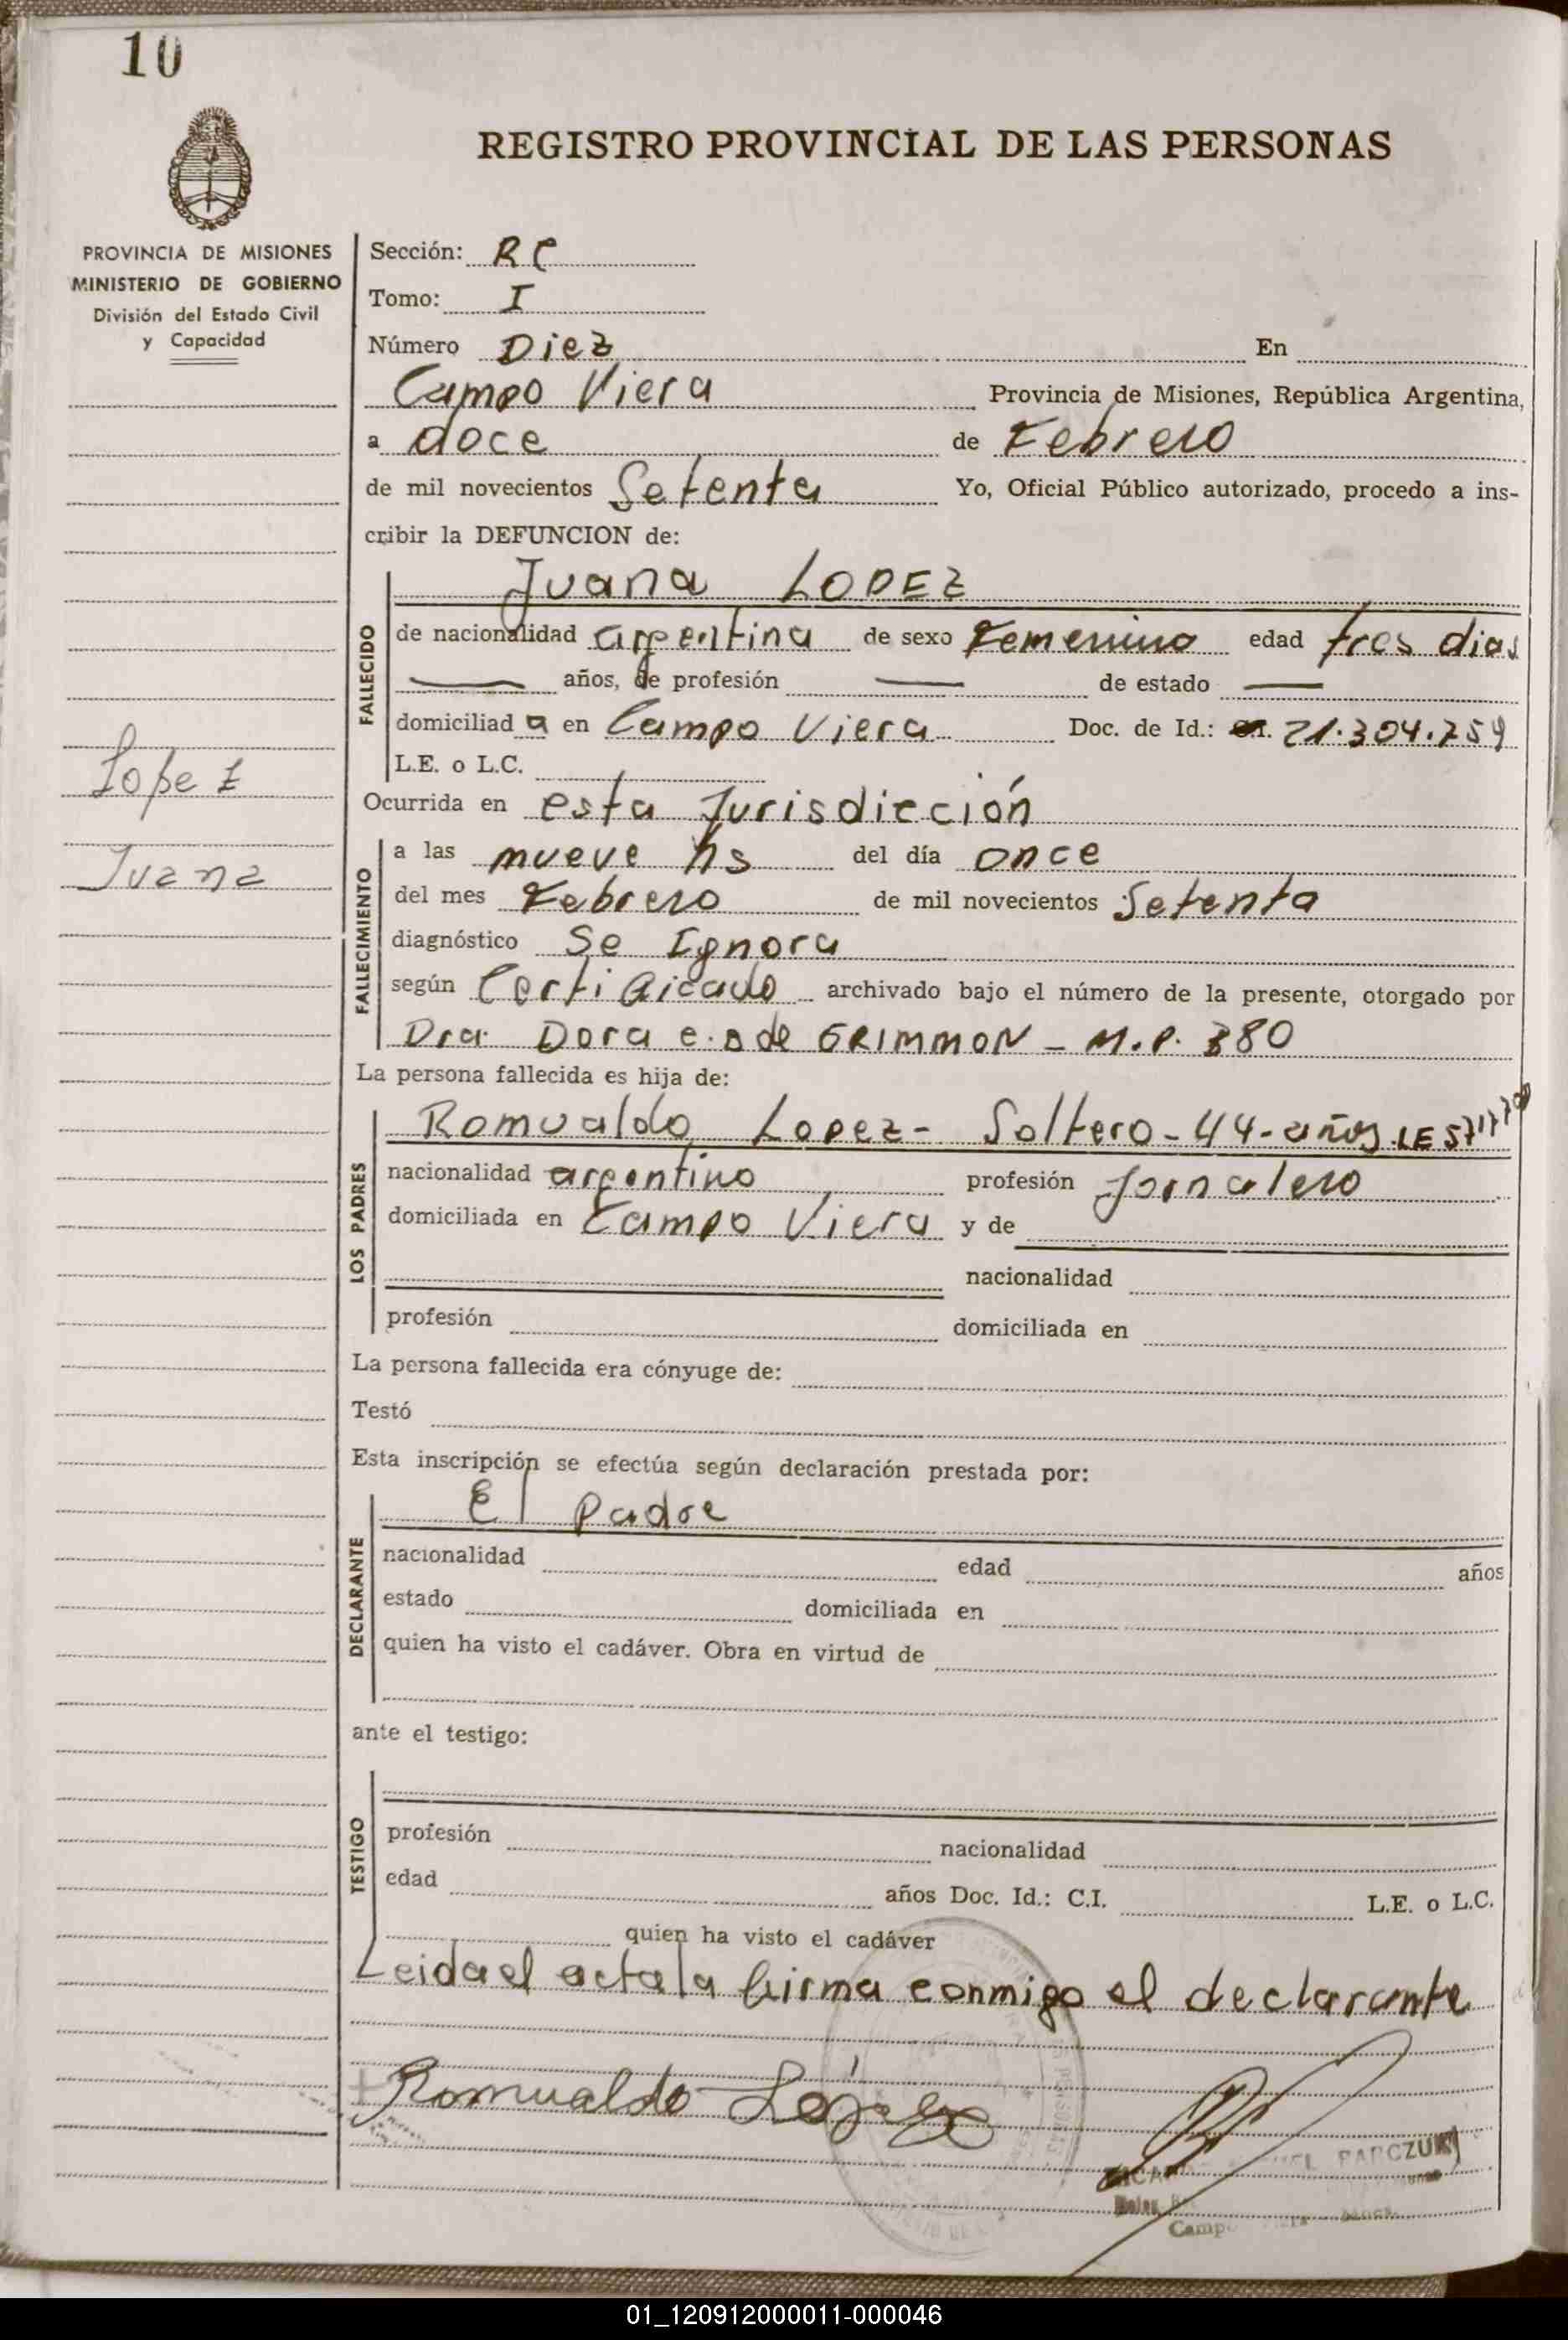 10
REGISTRO PROVINCIAL DE LAS PERSONAS
PROVINCIA DE MISIONES
MINISTERIO DE GOBIERNO
División del Estado Civil
y Capacidad
Lopez
Juana
Sección: RC
Tomo: I
Número Diez En
Campo Viera Provincia de Misiones, República Argentina,
a doce de Febrero
de mil novecientos Setenta Yo, Oficial Público autorizado, procedo a ins-
cribir la DEFUNCION de:
FALLECIDO
Juana LOPEZ
de nacionalidad argentina de sexo Femenino edad tres dias
años, de profesión de estado
domiciliad a en Campo Viera Doc. de Id.: 21.304.759
L.E. o L.C.
Ocurrida en esta Jurisdicción
FALLECIMIENTO
a las nueve hs del día once
del mes Febrero de mil novecientos Setenta
diagnóstico Se Ignora
según Certificado archivado bajo el número de la presente, otorgado por
Dra. Dora e. de GRIMMON - M.P. 380
La persona fallecida es hija de:
LOS PADRES
Romualdo Lopez - Soltero - 44 - años. LE
nacionalidad argentino profesión Jornalero
domiciliada en Campo Viera y de
nacionalidad
profesión domiciliada en
La persona fallecida era cónyuge de:
Testó
Esta inscripción se efectúa según declaración prestada por:
DECLARANTE
El Padre
nacionalidad edad años
estado domiciliada en
quien ha visto el cadáver. Obra en virtud de
ante el testigo:
TESTIGO
profesión nacionalidad
edad años Doc. Id.: C.I. L.E. o L.C.
quien ha visto el cadáver
Leida el acta la firma conmigo el declarante
Romualdo López
01_120912000011-000046